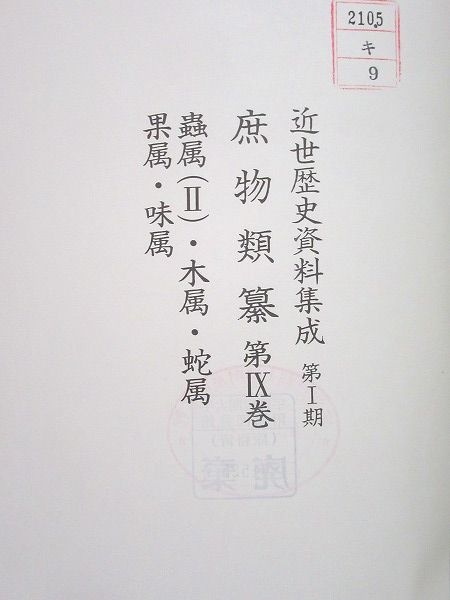 210.5
キ
9
近世歴史資料集成 第Ⅰ期
庶物類纂 第Ⅸ巻
蟲属(Ⅱ)・木属・蛇属
果属・味属
廃棄